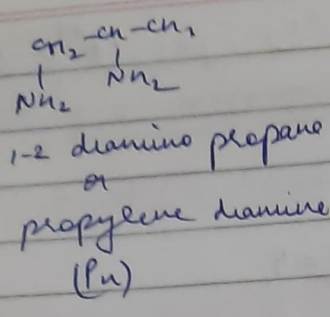 CH2-CH-CH3
NH2 NH2
1-2 diamino propane
or
propylene diamine
(Pn)